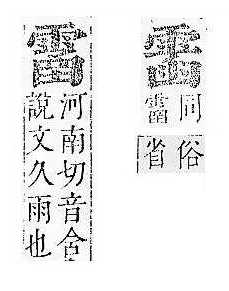 同
俗省
河南切音含
說文久雨也